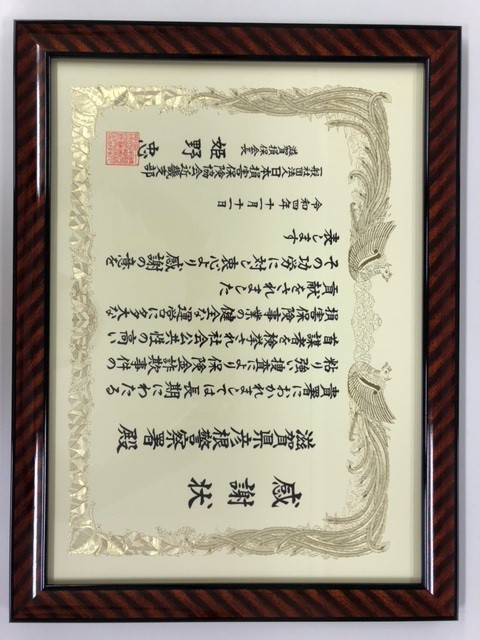 感謝状
滋賀県彦根警察署殿
貴署におかれましては長期にわたる
粘り強い捜査により保険金詐欺事件の
首謀者を検挙され社会公共性の高い
損害保険事業の健全な運営に多大な
貢献をされました
その功労に対し衷心より感謝の意を
表します
令和四年十一月十一日
一般社団法人日本損害保険協会近畿支部
滋賀損保会会長
姫野 忠